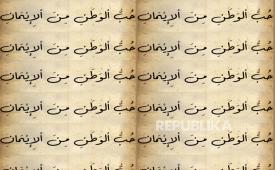 حُبُّ الْوَطَنِ مِنَ الْإِيْمَانِ حُبُّ الْوَطَنِ مِنَ الْإِيْمَانِ
حُبُّ الْوَطَنِ مِنَ الْإِيْمَانِ حُبُّ الْوَطَنِ مِنَ الْإِيْمَانِ
حُبُّ الْوَطَنِ مِنَ الْإِيْمَانِ حُبُّ الْوَطَنِ مِنَ الْإِيْمَانِ
حُبُّ الْوَطَنِ مِنَ الْإِيْمَانِ حُبُّ الْوَطَنِ مِنَ الْإِيْمَانِ
REPUBLIKA
حُبُّ الْوَطَنِ مِنَ الْإِيْمَانِ حُبُّ الْوَطَنِ مِنَ الْإِيْمَانِ
حُبُّ الْوَطَنِ مِنَ الْإِيْمَانِ حُبُّ الْوَطَنِ مِنَ الْإِيْمَانِ